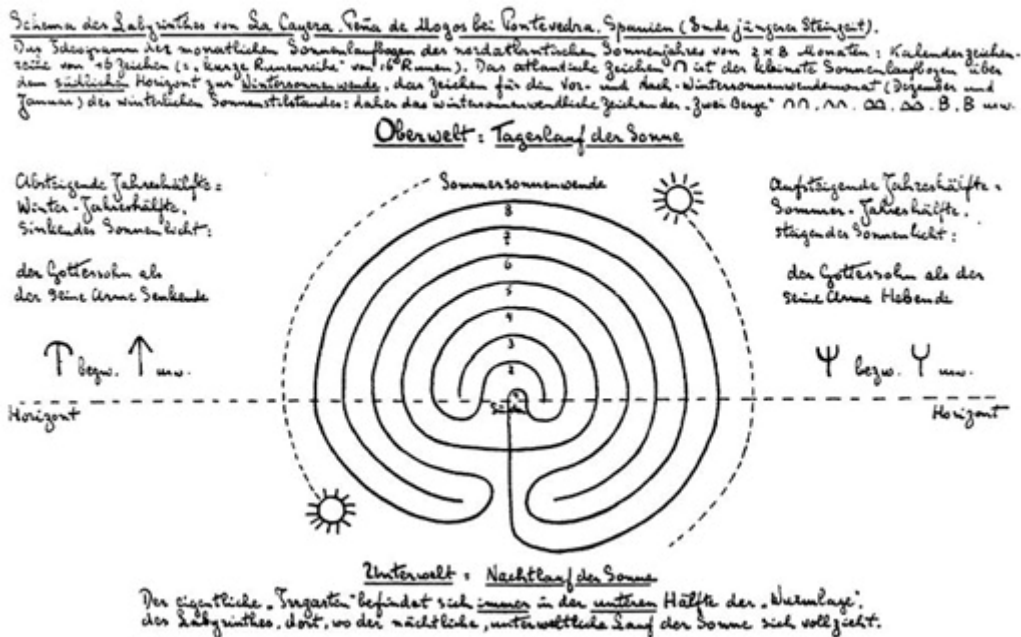 Schema des Labyrinthes von La Cayera, Peña de Mogos bei Pontevedra, Spanien (Ende jüngerer Steinzeit).
Das Ideogramm der monatlichen Sonnenlaufbogen des nordatlantischen Sonnenjahres von 2 x 8 Monaten: Kalenderzeichen-
reihe von 16 Zeichen (s. „kurze Runenreihe" von 16 Runen). Das atlantische Zeichen ∩ ist der kleinste Sonnenlaufbogen über
dem südlichen Horizont zur Wintersonnenwende, das Zeichen für den Vor- und Nach-Wintersonnenwendemonat (Dezember und
Januar) des winterlichen Sonnenstillstandes: daher das wintersonnenwendliche Zeichen der „zwei Berge" ∩∩, B, B usw.
Oberwelt = Tageslauf der Sonne
Absteigende Jahreshälfte =
Winter-Jahreshälfte,
sinkendes Sonnenlicht:
der Gottessohn als
der seine Arme Senkende
bezw. ↑ usw.
Horizont
Sommersonnenwende
8
7
6
5
4
3
2
Süden
Aufsteigende Jahreshälfte =
Sommer-Jahreshälfte,
steigendes Sonnenlicht:
der Gottessohn als der
seine Arme Hebende
Ψ bezw. Y usw.
Horizont
Unterwelt = Nachtlauf der Sonne
Der eigentliche „Irrgarten" befindet sich immer in der unteren Hälfte der „Wurmlage",
des Labyrinthes, dort, wo der nächtliche, unterweltliche Lauf der Sonne sich vollzieht.